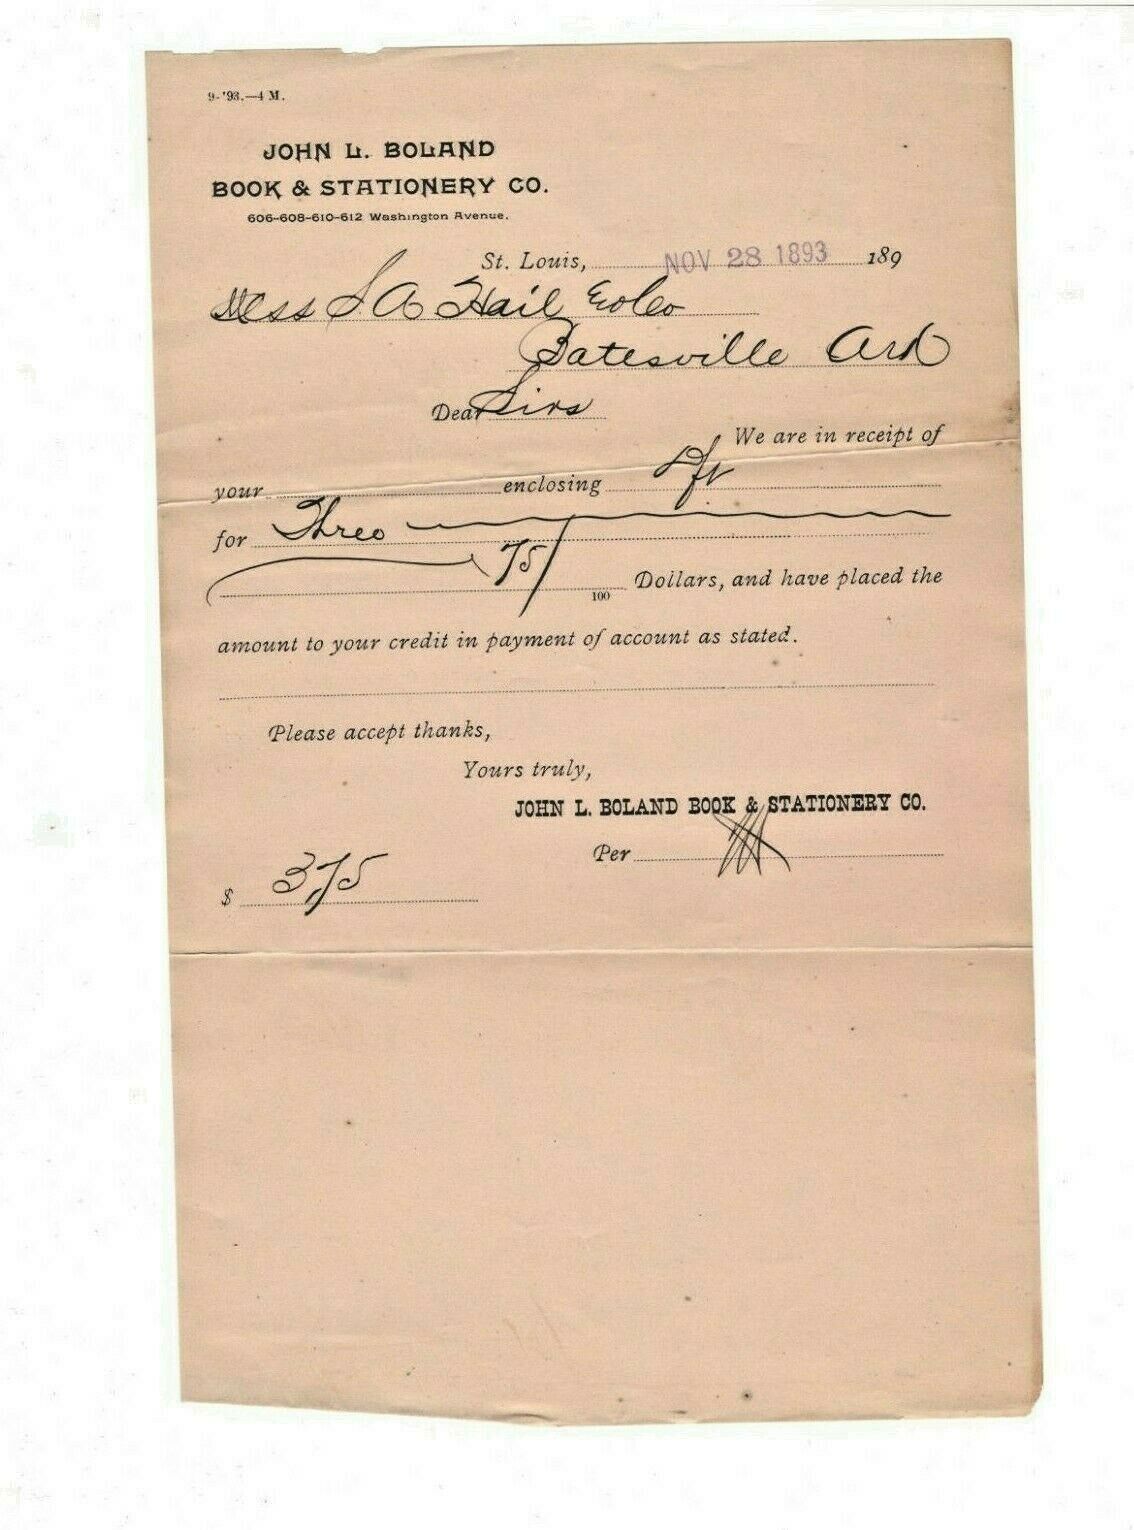 9-'93.—4 M.
JOHN L. BOLAND
BOOK & STATIONERY CO.
606-608-610-612 Washington Avenue.
St. Louis, NOV 28 1893 189
Mess S A Hail & Co
Batesville Ark
Dear Sirs
We are in receipt of
your enclosing dft
for Three
75/100 Dollars, and have placed the
amount to your credit in payment of account as stated.
Please accept thanks,
Yours truly,
JOHN L. BOLAND BOOK & STATIONERY CO.
Per
$ 3,75